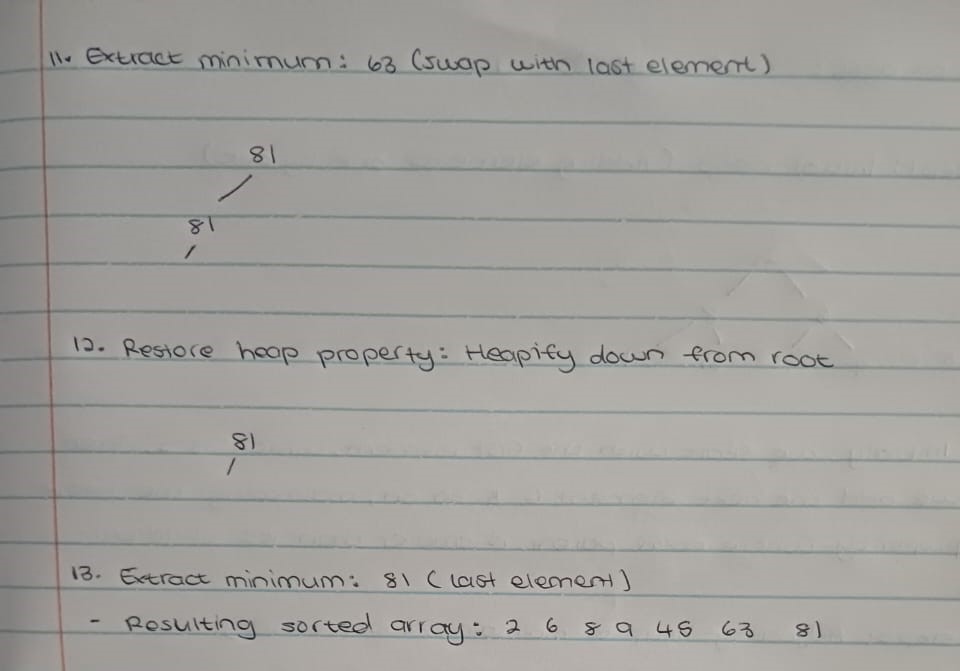 11. Extract minimum: 63 (swap with last element)
81
81
12. Restore heap property: Heapify down from root
81
13. Extract minimum: 81 (last element)
- Resulting sorted array: 2 6 8 9 45 63 81